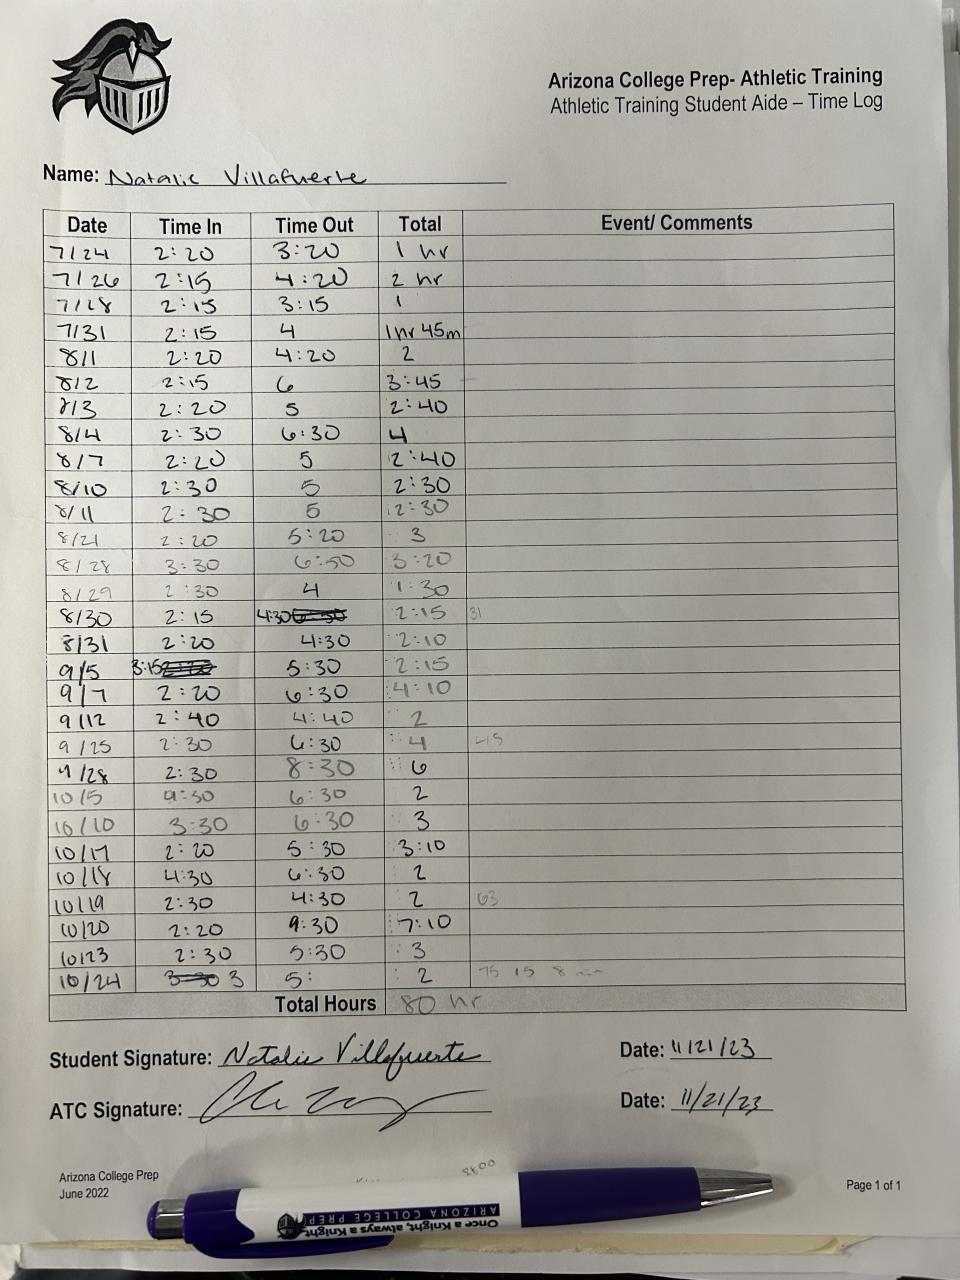 Arizona College Prep- Athletic Training
Athletic Training Student Aide – Time Log
Name: Natalie Villafuerte
Date Time In Time Out Total Event/ Comments
7/24 2:20 3:20 1 hr
7/26 2:15 4:20 2 hr
7/28 2:15 3:15 1
7/31 2:15 4 1hr 45m
8/1 2:20 4:20 2
8/2 2:15 6 3:45
8/3 2:20 5 2:40
8/4 2:30 6:30 4
8/7 2:20 5 2:40
8/10 2:30 5 2:30
8/11 2:30 5 2:30
8/21 2:20 5:20 3
8/28 3:30 6:50 3:20
8/29 2:30 4 1:30
8/30 2:15 4:30 2:15 31
8/31 2:20 4:30 2:10
9/5 3:15 5:30 2:15
9/7 2:20 6:30 4:10
9/12 2:40 4:40 2
9/25 2:30 6:30 4
9/28 2:30 8:30 6
10/5 4:30 6:30 2
10/10 3:30 6:30 3
10/17 2:20 5:30 3:10
10/18 4:30 6:30 2
10/19 2:30 4:30 2 63
10/20 2:20 9:30 7:10
10/23 2:30 5:30 3
10/24 3 5: 2 75 15
Total Hours 80 hr
Student Signature: Natalie Villafuerte Date: 11/21/23
ATC Signature: Date: 11/21/23
Arizona College Prep
June 2022
Page 1 of 1
Once a Knight, always a Knight
ARIZONA COLLEGE PREP